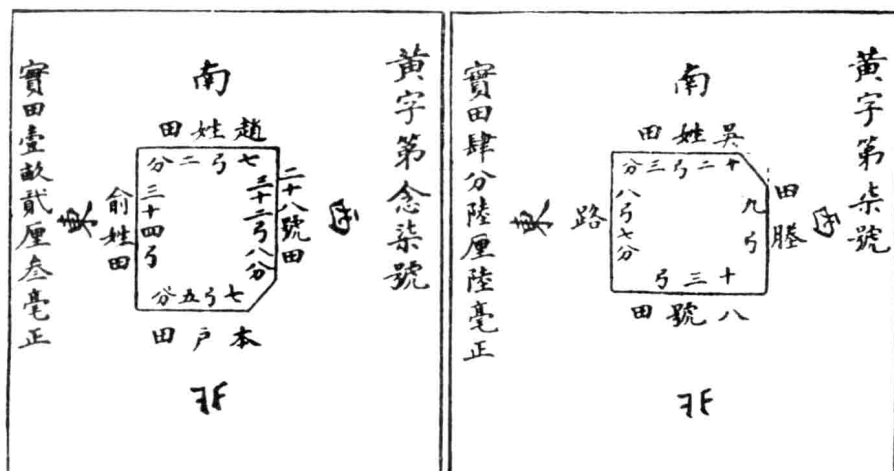 黃字第柒號
南
吳姓田
十二弓三分
田塍
九弓
西
八弓七分
路
東
十三弓
八號田
北
實田肆分陸厘陸毫正
黃字第念柒號
南
趙姓田
七弓二分
二十八號田
三十二弓八分
西
三十四弓
俞姓田
東
七弓五分
本戶田
北
實田壹畝貳厘叁毫正